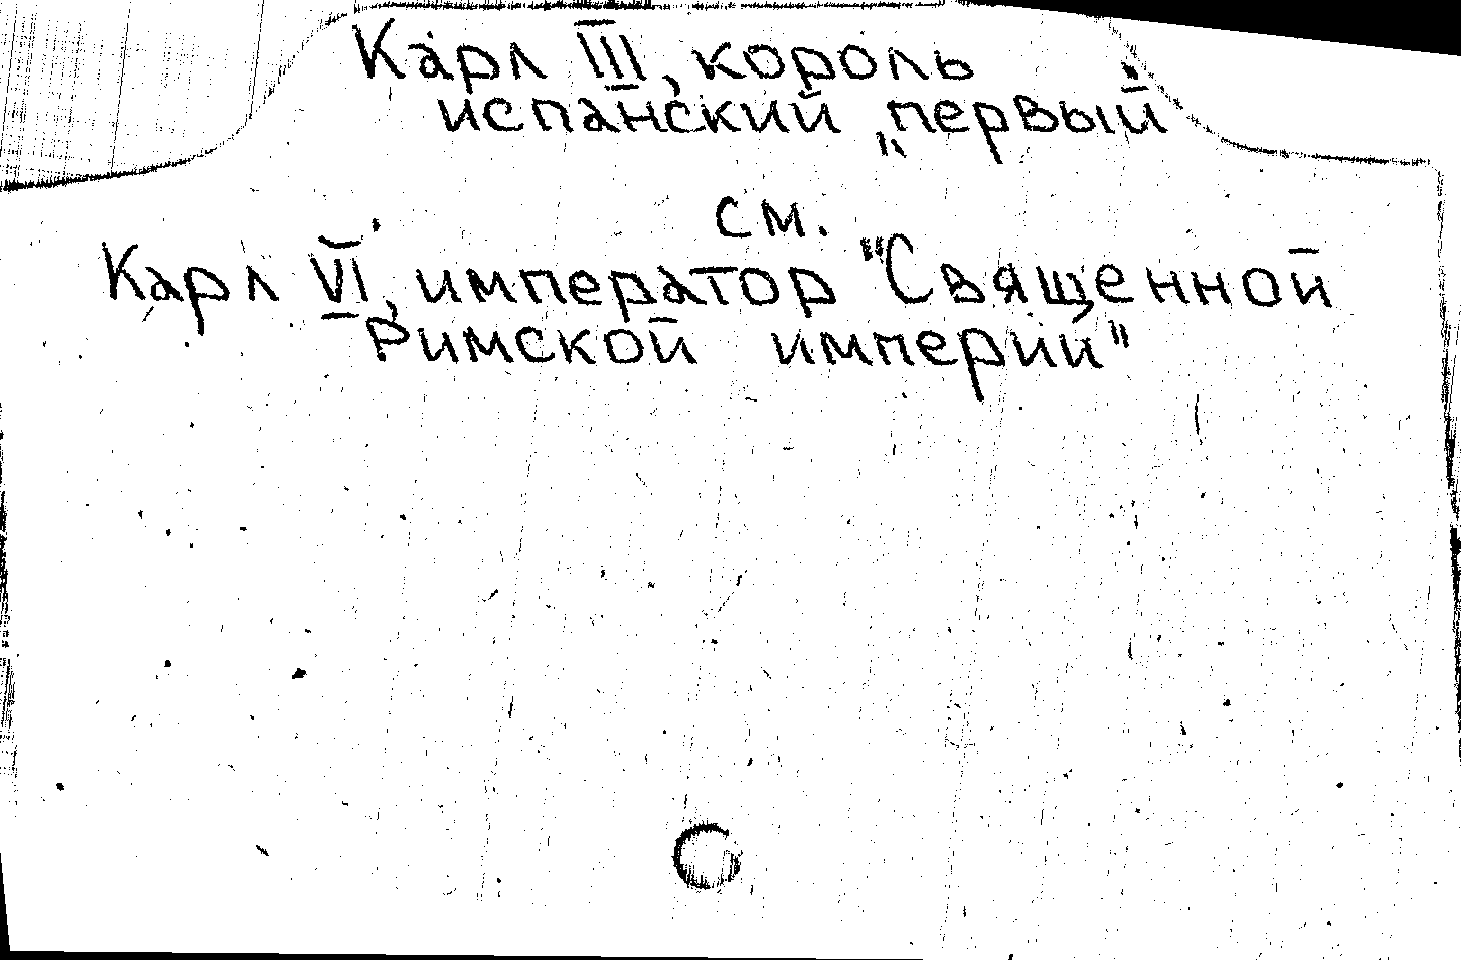 Карл III, король
испанский „первый"
см.
Карл VI, император "Священной
Римской империи"